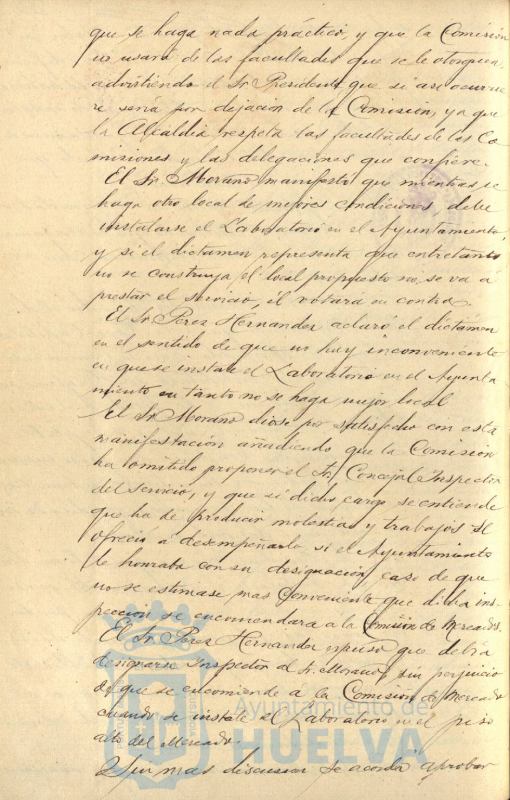 que se haga nada práctico, y que la Comisión
no usará de las facultades que se le otorguen,
advirtiendo el Sr. Presidente que si asi ocurrie
re será por dejación de la Comisión, ya que
la Alcaldía respeta las facultades de las Co
misiones y las delegaciones que confiere.
El Sr. Morano manifestó que mientras se
haga otro local de mejores condiciones debe
instalarse el Laboratorio en el Ayuntamiento,
y si el dictamen representa que entretanto
no se construya el local propuesto no se va á
prestar el servicio, él votará en contra.
El Sr. Perez Hernandez aclaró el dictámen
en el sentido de que no hay inconveniente
en que se instale el Laboratorio en el Ayunta
miento en tanto no se haga mejor local
El Sr. Morano diose por satisfecho con esta
manifestación añadiendo que la Comisión
ha omitido proponer el Sr. Concejal Inspector
del servicio, y que si dicho cargo se entiende
que ha de producir molestias y trabajos se
ofrecia a desempeñarlo si el Ayuntamiento
le honraba con su designación, caso de que
no se estimase mas conveniente que dicha ins-
pección se encomendara a la Comisión de Mercados.
El Sr. Perez Hernandez expuso que debia
designarse Inspector al Sr. Morano, sin perjuicio
de que se encomiende a la Comision de Mercado
cuando se instale el Laboratorio en el piso
alto del Mercado.
Sin mas discusion se acordó aprobar
Ayuntamiento de
HUELVA